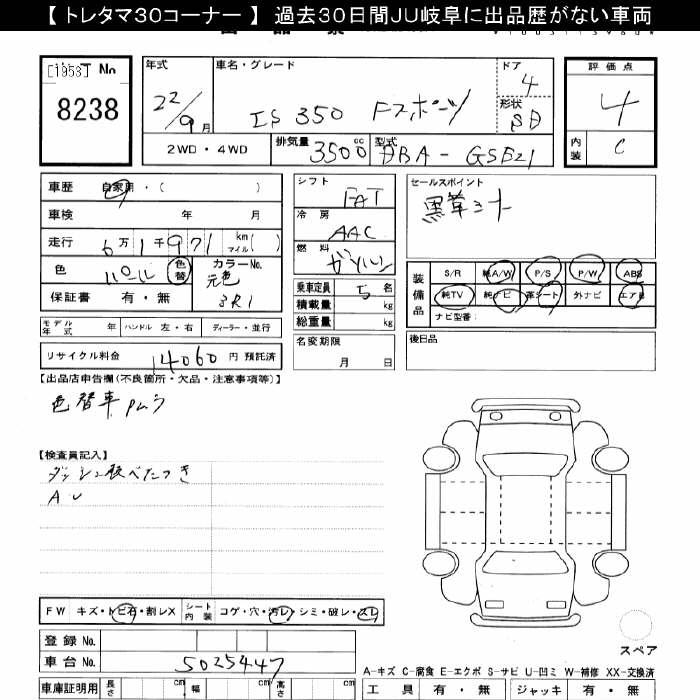 【 トレタマ30コーナー 】 過去30日間JU岐阜に出品歴がない車両
[1953] No
8238
年式
22/9月
車名・グレード
IS 350 Fスポーツ
ドア
4
形状
SD
評価点
4
内装
C
2WD・4WD
排気量
3500cc
型式
DBA-GSE21
車歴 自家用・( )
車検 年 月
走行 6万1千971 km/マイル( )
色 パール 色替
カラーNo. 元色 3R1
保証書 有・無
シフト
FAT
冷房
AAC
燃料
ガソリン
乗車定員 5名
積載量 kg
総重量 kg
セールスポイント
黒革シート
装備品
S/R 純A/W P/S P/W ABS
純TV 純ナビ 革シート 外ナビ エアB
ナビ型番:
モデル年式 年 ハンドル 左・右 ディーラー・並行
リサイクル料金 14060 円 預託済
名変期限
月 日
後日品
【出品店申告欄(不良箇所・欠品・注意事項等)】
色替車 Pムラ
【検査員記入】
ダッシュ板べたつき
AU
FW キズ・トビ石・割レX シート内装 コゲ・穴・汚レ・シミ・破レ・スレ
登録 No.
車台 No. 5025447
スペア
A-キズ C-腐食 E-エクボ S-サビ U-凹ミ W-補修 XX-交換済
車庫証明用 長さ cm 幅 cm 高さ cm
工具 有・無 ジャッキ 有・無